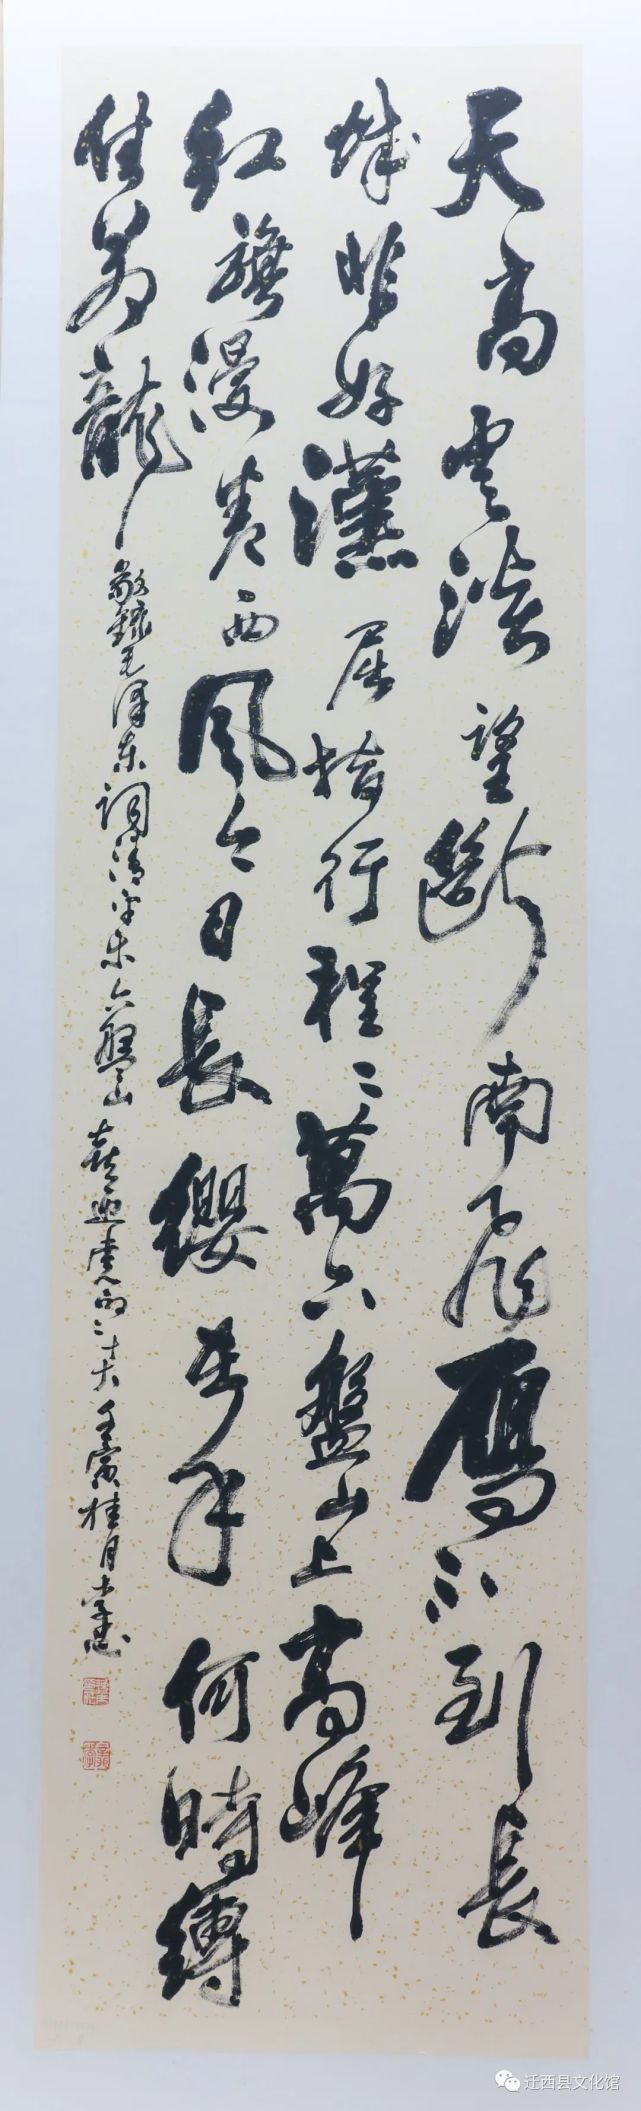 天高雲淡望斷南飛鴈不到長
城非好漢屈指行程二萬六盤山上高峰
红旗漫卷西風今日長纓在手何時縛
住蒼龍
敬録毛泽东詞清平樂六盤山喜迎党的二十大壬寅桂月
迁西县文化馆